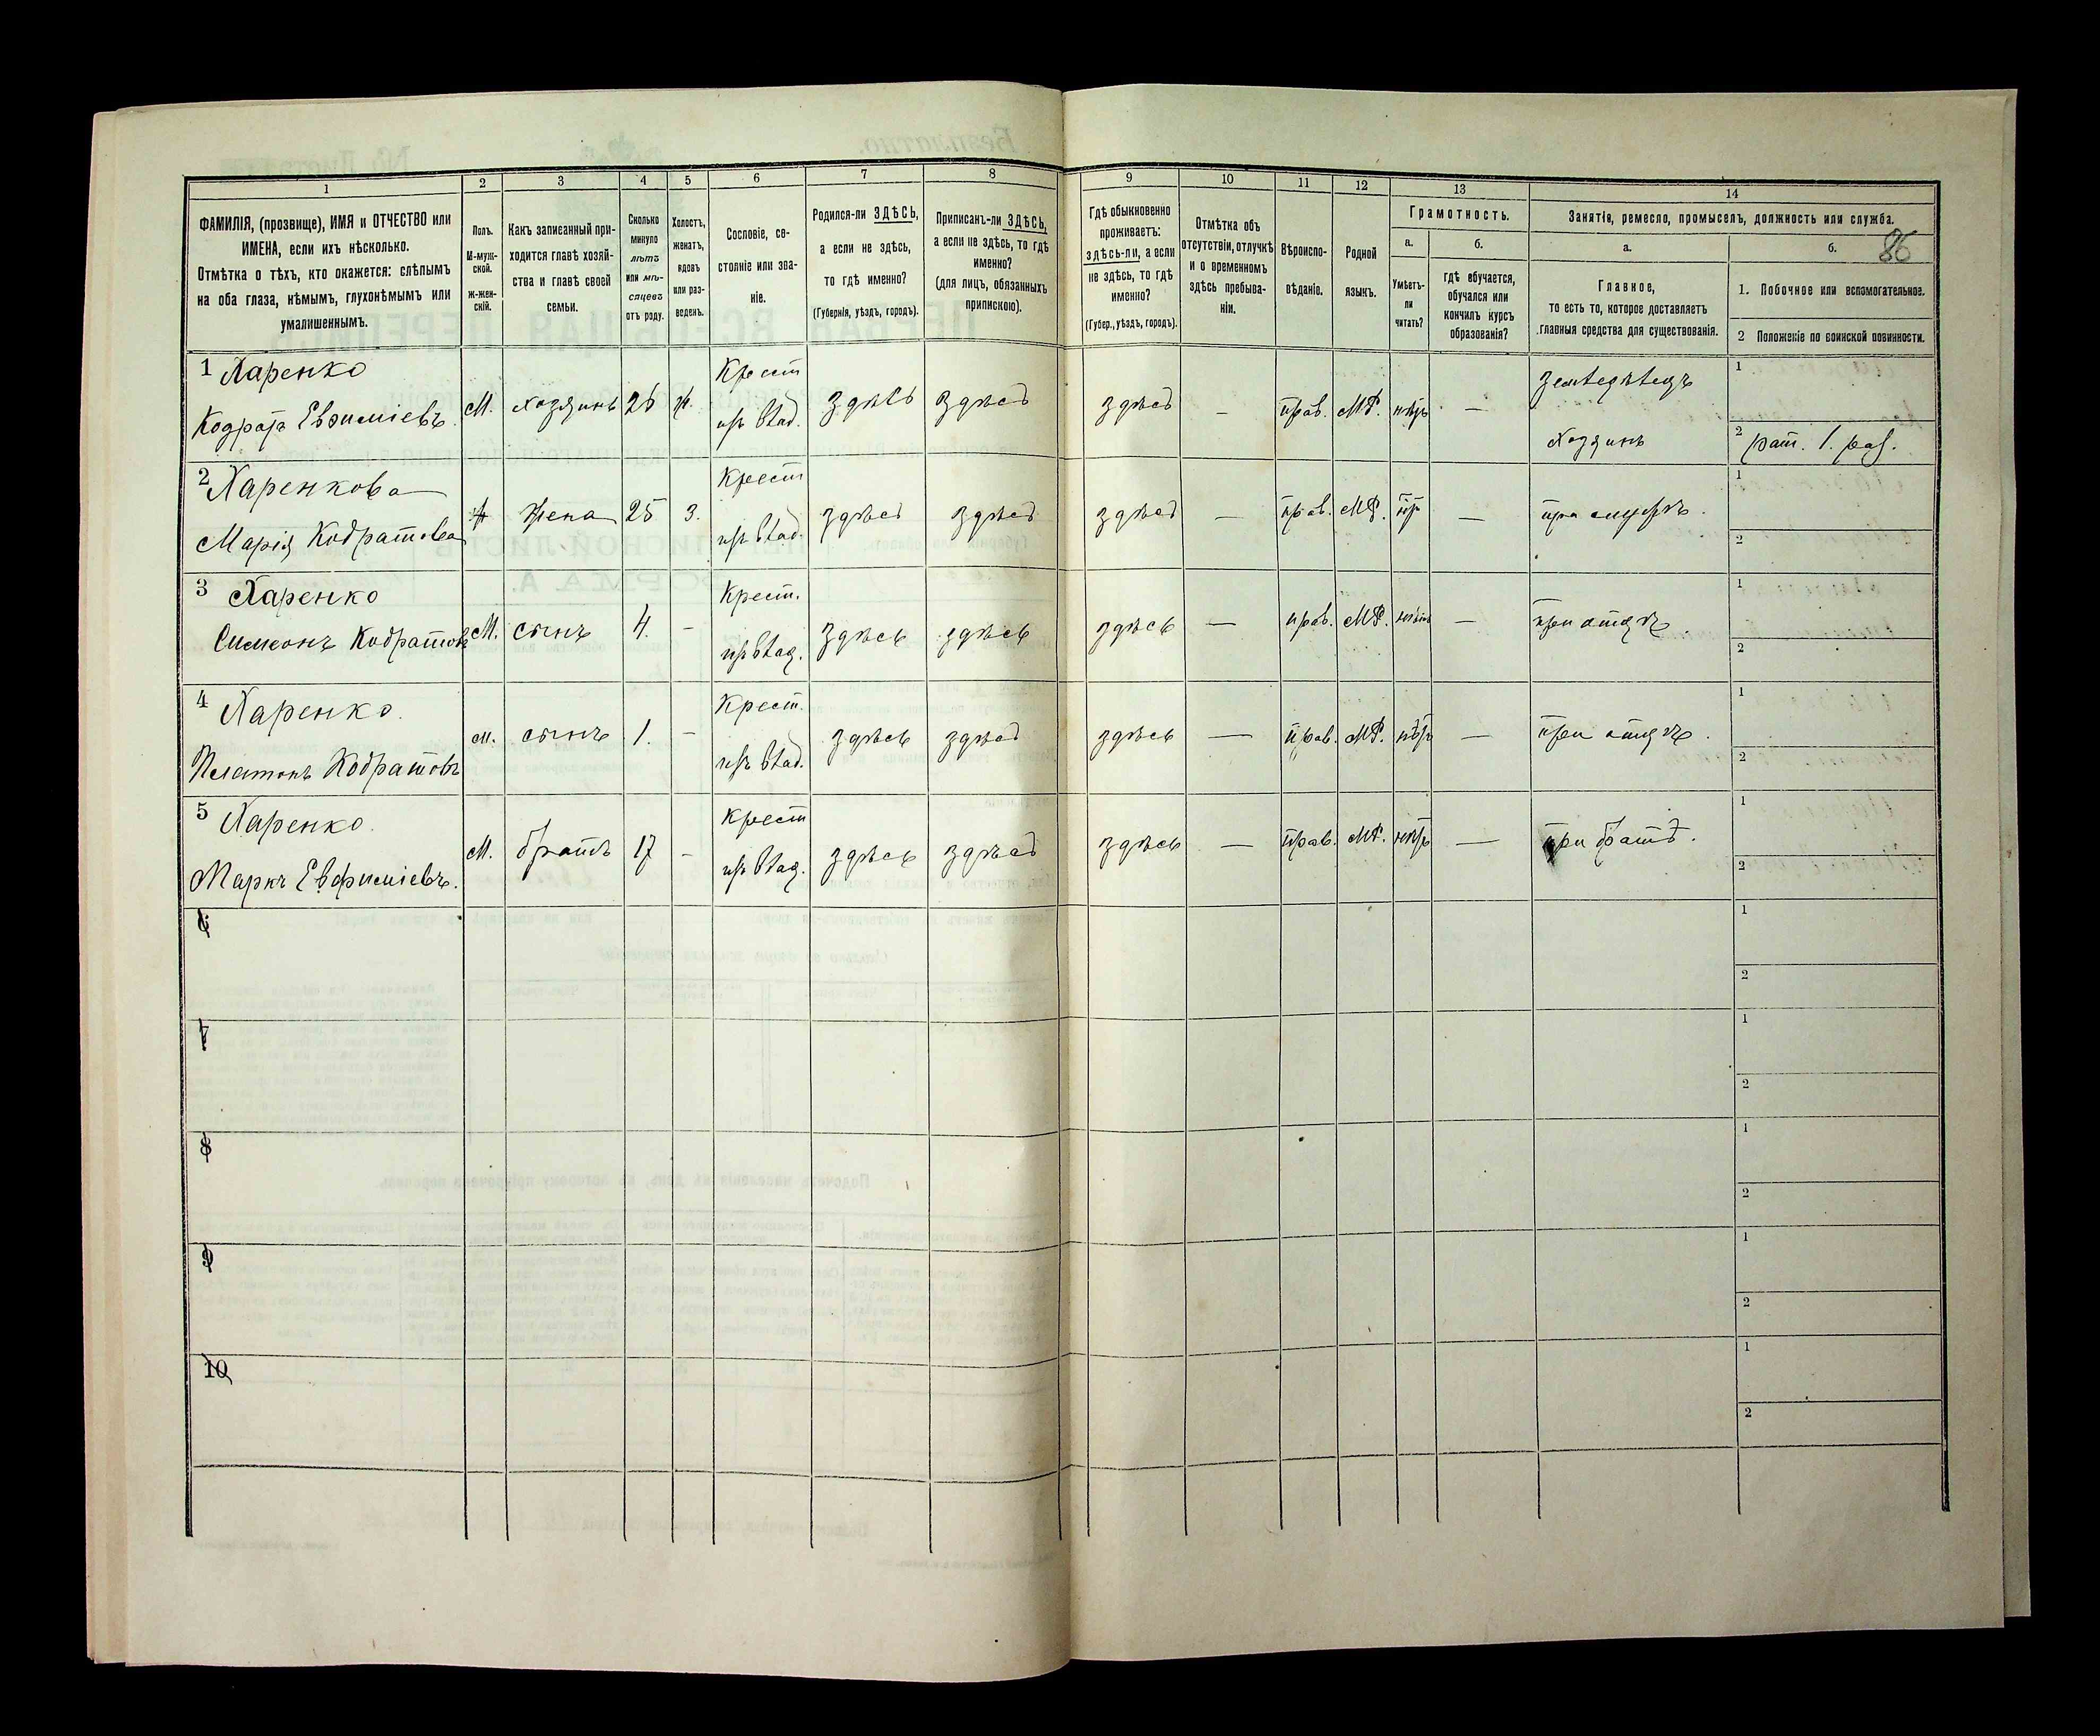 1
2
3
4
5
6
7
8
9
10
11
12
13
14
ФАМИЛІЯ, (прозвище), ИМЯ и ОТЧЕСТВО или
ИМЕНА, если ихъ нѣсколько.
Отмѣтка о тѣхъ, кто окажется: слѣпымъ
на оба глаза, нѣмымъ, глухонѣмымъ или
умалишеннымъ.
Полъ.
М-муж-
ской.
ж-жен-
скій.
Какъ записанный при-
ходится главѣ хозяй-
ства и главѣ своей
семьи.
Сколько
минуло
лѣтъ
или мѣ-
сяцевъ
отъ роду.
Холостъ,
женатъ,
вдовъ
или раз-
веденъ.
Сословіе, со-
стояніе или зва-
ніе.
Родился-ли ЗДѢСЬ,
а если не здѣсь,
то гдѣ именно?
(Губернія, уѣздъ, городъ).
Приписанъ-ли ЗДѢСЬ,
а если не здѣсь, то гдѣ
именно?
(для лицъ, обязанныхъ
припискою).
Гдѣ обыкновенно
проживаетъ:
здѣсь-ли, а если
не здѣсь, то гдѣ
именно?
(Губер., уѣздъ, городъ).
Отмѣтка объ
отсутствіи, отлучкѣ
и о временномъ
здѣсь пребыва-
ніи.
Вѣроиспо-
вѣданіе.
Родной
языкъ.
Грамотность.
а.
б.
Умѣетъ-
ли
читать?
гдѣ обучается,
обучался или
кончилъ курсъ
образованія?
Занятіе, ремесло, промыселъ, должность или служба.
а.
б.
86
Главное,
то есть то, которое доставляетъ
главныя средства для существованія.
1. Побочное или вспомогательное.
2 Положеніе по воинской повинности.
1 Харенко
Кодратъ Евфиміевъ.
М. хозяинъ 26 ж.
Крест
изъ влад.
здѣсь здѣсь здѣсь — прав. МР. нѣтъ —
земледѣлецъ
хозяинъ
1
2 рат. 1. раз.
2 Харенкова
Марія Кодратова
ж жена 25 з.
Крест
изъ влад.
здѣсь здѣсь здѣсь — прав. МР. —
при мужѣ.
1
2
3 Харенко
Симеонъ Кодратовъ
М. сынъ 4. —
Крест.
изъ влад.
здѣсь здѣсь здѣсь — прав. МР. нѣтъ —
при отцѣ.
1
2
4 Харенко.
Платонъ Кодратовъ
м. сынъ 1. —
Крест.
изъ влад.
здѣсь здѣсь здѣсь — прав. МР. нѣтъ —
при отцѣ.
1
2
5 Харенко.
Маркъ Евфиміевъ.
М. братъ 17 —
Крест
изъ влад.
здѣсь здѣсь здѣсь — прав. МР. нѣтъ —
при братѣ.
1
2
6
1
2
7
1
2
8
1
2
9
1
2
10
1
2